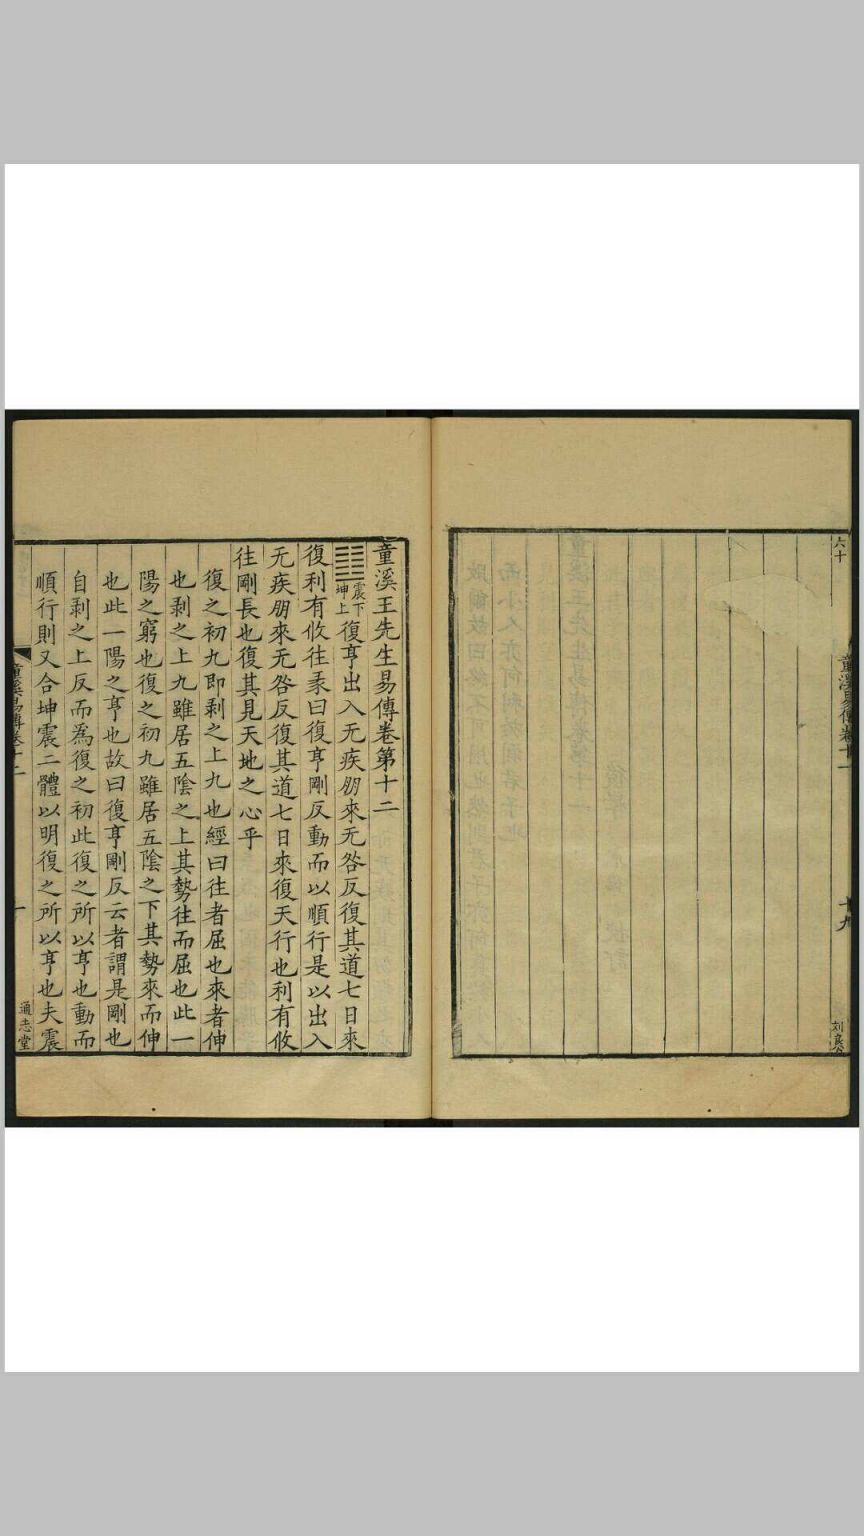 六十
童溪易傳卷十一
十九
童溪王先生易傳卷第十二
震下
坤上
復亨出入无疾朋來无咎反復其道七日來
復利有攸往彖曰復亨剛反動而以順行是以出入
无疾朋來无咎反復其道七日來復天行也利有攸
往剛長也復其見天地之心乎
復之初九即剥之上九也經曰往者屈也來者伸
也剥之上九雖居五陰之上其勢往而屈也此一
陽之窮也復之初九雖居五陰之下其勢來而伸
也此一陽之亨也故曰復亨剛反云者謂是剛也
自剥之上反而爲復之初此復之所以亨也動而
順行則又合坤震二體以明復之所以亨也夫震
童溪易傳卷十二
一
通志堂